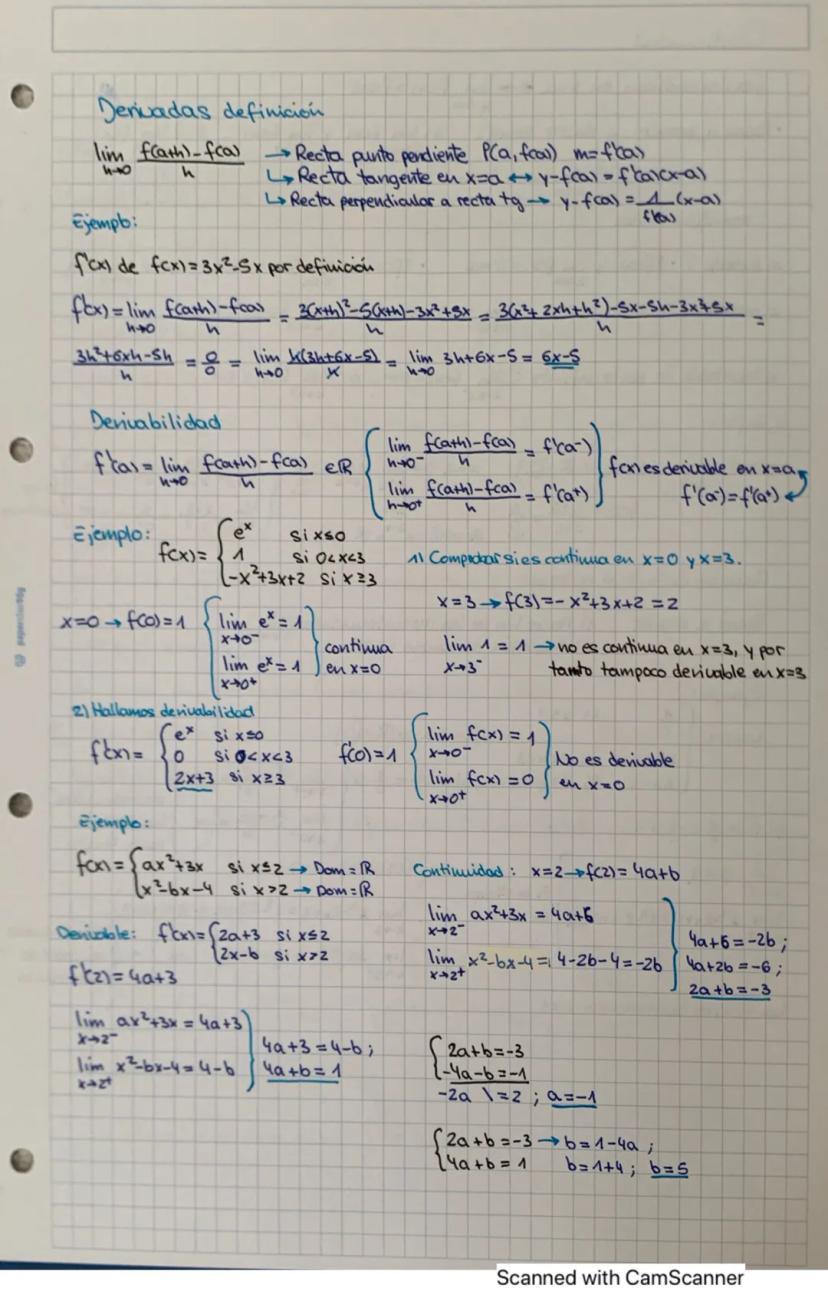 Derivadas definición
lim h→0 f(a+h)-f(a) / h → Recta punto pendiente P(a, f(a)) m=f'(a)
↳ Recta tangente en x=a ↔ y-f(a) = f'(a)(x-a)
↳ Recta perpendicular a recta tg → y-f(a) = 1/f'(a) (x-a)
Ejemplo:
f'(x) de f(x)=3x²-5x por definición
f'(x) = lim h→0 f(a+h)-f(a) / h = 3(x+h)²-5(x+h)-3x²+5x / h = 3(x²+2xh+h²)-5x-5h-3x²+5x / h =
3h²+6xh-5h / h = 0/0 = lim h→0 h(3h+6x-5) / h = lim h→0 3h+6x-5 = 6x-5
Derivabilidad
f'(a) = lim h→0 f(a+h)-f(a) / h ∈ℝ { lim h→0⁻ f(a+h)-f(a) / h = f'(a⁻)
lim h→0⁺ f(a+h)-f(a) / h = f'(a⁺) } f(x) es derivable en x=a
f'(a⁻)=f'(a⁺)
Ejemplo: f(x) = { eˣ si x≤0
1 si 0<x<3
-x²+3x+2 si x≥3
1) Comprobar si es continua en x=0 y x=3.
x=0 → f(0)=1 { lim x→0⁻ eˣ = 1
lim x→0⁺ eˣ = 1 } continua en x=0
x=3 → f(3) = -x²+3x+2 = 2
lim x→3⁻ 1 = 1 → no es continua en x=3, y por
tanto tampoco derivable en x=3
2) Hallamos derivabilidad
f'(x) = { eˣ si x≤0
0 si 0<x<3
2x+3 si x≥3
f'(0)=1 { lim x→0⁻ f(x) = 1
lim x→0⁺ f(x) = 0 } No es derivable
en x=0
Ejemplo:
f(x) = { ax²+3x si x≤2 → Dom=ℝ
x²-bx-4 si x>2 → Dom=ℝ
Continuidad: x=2 → f(2) = 4a+b
lim x→2⁻ ax²+3x = 4a+6
lim x→2⁺ x²-bx-4 = 4-2b-4 = -2b
4a+6 = -2b;
4a+2b = -6;
2a+b = -3
Derivable: f'(x) = { 2a+3 si x≤2
2x-b si x>2
f'(2) = 4a+3
lim x→2⁻ ax²+3x = 4a+3
lim x→2⁺ x²-bx-4 = 4-b
4a+3 = 4-b;
4a+b = 1
{ 2a+b=-3
-4a-b=-1
-2a \=2; a=-1
{ 2a+b=-3 → b=1-4a;
4a+b=1 b=1+4; b=5
Scanned with CamScanner